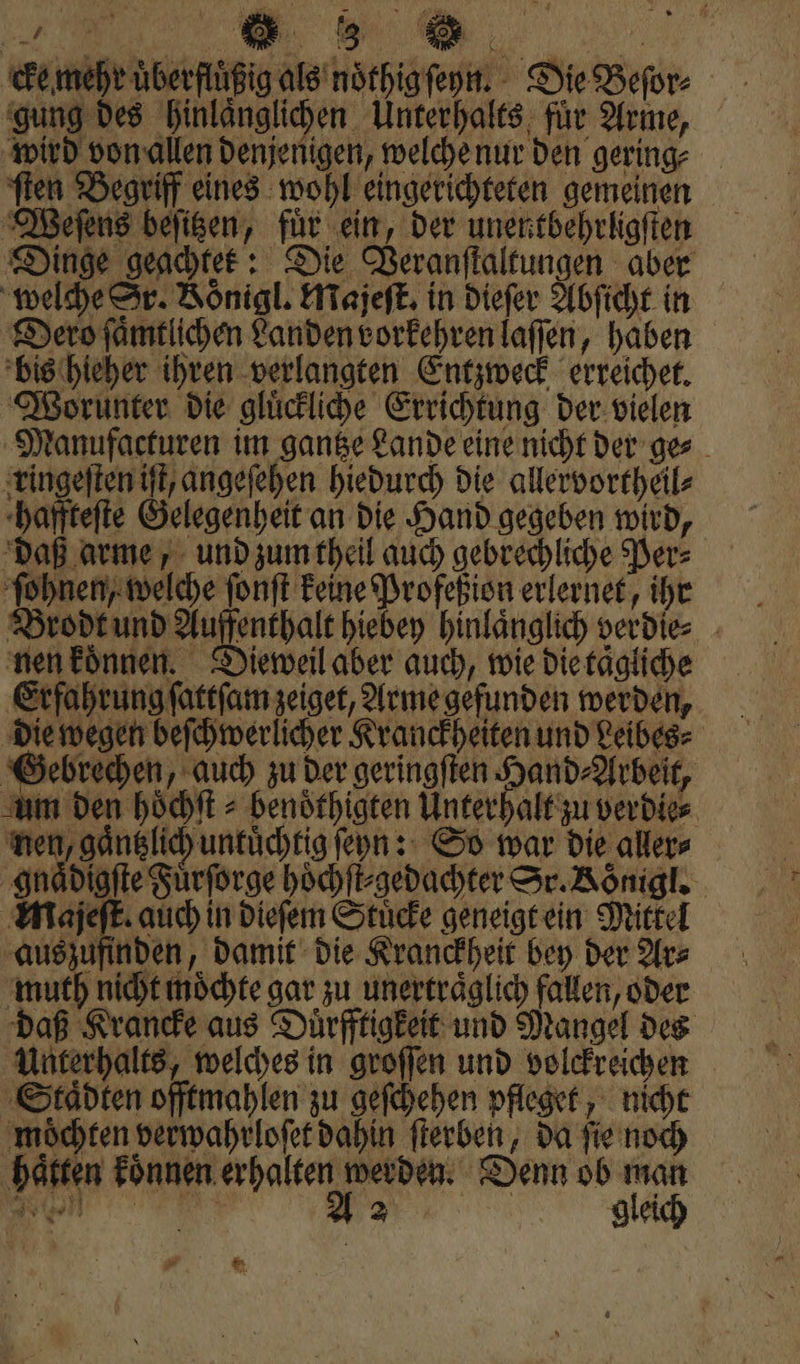 3
cke mehr uͤberfluͤßig als noͤthig ſeyn. Die Beſor⸗
gung des hinlaͤnglichen Unterhalts fuͤr Arme,
wird von allen denjenigen, welche nur den gering⸗
ſten Begriff eines wohl eingerichteten gemeinen
Weſens beſitzen, fuͤr ein, der unentbehrligſten
Dinge geachtet: Die Veranſtaltungen aber
welche Sr. Koͤnigl. Majeſt. in dieſer Abſicht in
Dero ſaͤmtlichen Landen vorkehren laſſen, haben
bis hieher ihren verlangten Entzweck erreichet.
Worunter die gluͤckliche Errichtung der vielen
Manufacturen im gantze Lande eine nicht der ge⸗
ringeſten iſt, angeſehen hiedurch die allervortheil⸗
haffteſte Gelegenheit an die Hand gegeben wird,
daß arme, und zum theil auch gebrechliche Per⸗
ſohnen, welche ſonſt keine Profeßion erlernet, ihr
Brodt und Auffenthalt hiebey hinlaͤnglich verdie⸗
nen koͤnnen. Dieweil aber auch, wie die taͤgliche
Erfahrung ſattſam zeiget, Arme gefunden werden,
die wegen beſchwerlicher Kranckheiten und Leibes⸗
Gebrechen, auch zu der geringſten Hand⸗Arbeit,
um den hoͤchſt⸗benoͤthigten Unterhalt zu verdie⸗
nen, gaͤntzlich untuͤchtig ſeyn: So war die aller⸗
gnaͤdigſte Fuͤrſorge hoͤchſt⸗gedachter Sr. Koͤnigl.
Majeſt. auch in dieſem Stuͤcke geneigt ein Mittel
auszufinden, damit die Kranckheit bey der Ar⸗
muth nicht moͤchte gar zu unertraͤglich fallen, oder
daß Krancke aus Duͤrfftigkeit und Mangel des
Unterhalts, welches in groſſen und volckreichen
Staͤdten offtmahlen zu geſchehen pfleget, nicht
moͤchten verwahrloſet dahin ſterben, da ſie noch
haͤtten koͤnnen erhalten werden. Denn ob man
A 2 gleich